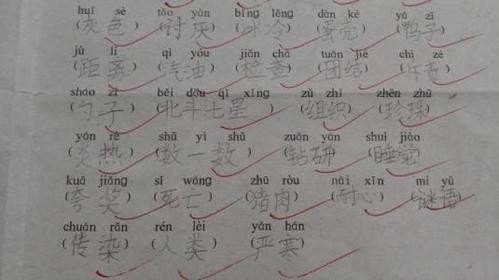 huī sè tǎo yàn bīng lěng dàn ké yā zi
(灰色) (讨厌) (冰冷) (蛋壳) (鸭子)
jù lí qì yóu jiǎn chá tuán jié chì zé
(距离) (汽油) (检查) (团结) (斥责)
sháo zi běi dǒu qī xīng zǔ zhī zhēn zhū
(勺子) (北斗七星) (组织) (珍珠)
yán rè shǔ yi shǔ zuān yán shuì jiào
(炎热) (数一数) (钻研) (睡觉)
kuā jiǎng sǐ wáng zhū ròu nài xīn mí yǔ
(夸奖) (死亡) (猪肉) (耐心) (谜语)
chuán rǎn rén lèi yán hán
(传染) (人类) (严寒)